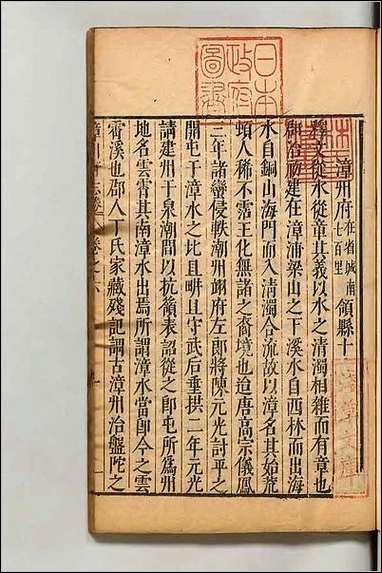 日本
政府
圖書
漳州府在省城南七百里領縣十
釋文從水從章其義以水之清濁相雜而有章也
郡治初建在漳浦梁山之下溪水自西林而出海
水自銅山海門而入清濁合流故以漳名其始荒
頑人稀不霑王化無諸之裔境也迨唐高宗儀鳳
三年諸蠻侵軼潮州翊府左郎將陳元光討平之
開屯于漳水之北且畊且守武后垂拱二年元光
請建州于泉潮間以抗嶺表詔從之即屯所為州
地名雲霄其南漳水出焉所謂漳水當即今之雲
霄溪也郡人丁氏家藏殘記謂古漳州治盤陀之